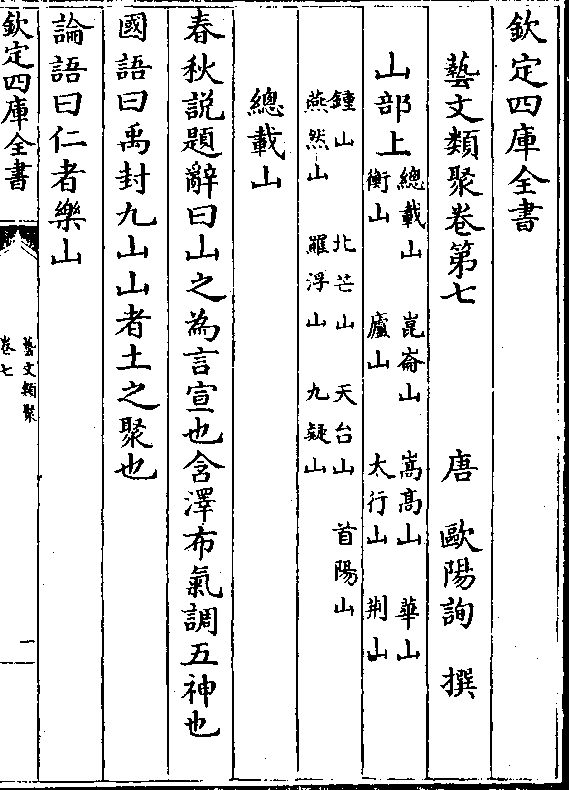 欽定四庫全書
藝文類聚卷第七
唐 歐陽詢 撰
山部上
總載山 崑崙山 嵩高山 華山
衡山 廬山 太行山 荆山
鍾山 北芒山 天台山 首陽山
燕然山 羅浮山 九疑山
總載山
春秋説題辭曰山之為言宣也含澤布氣調五神也
國語曰禹封九山山者土之聚也
論語曰仁者樂山
欽定四庫全書
藝文類聚
卷七
一